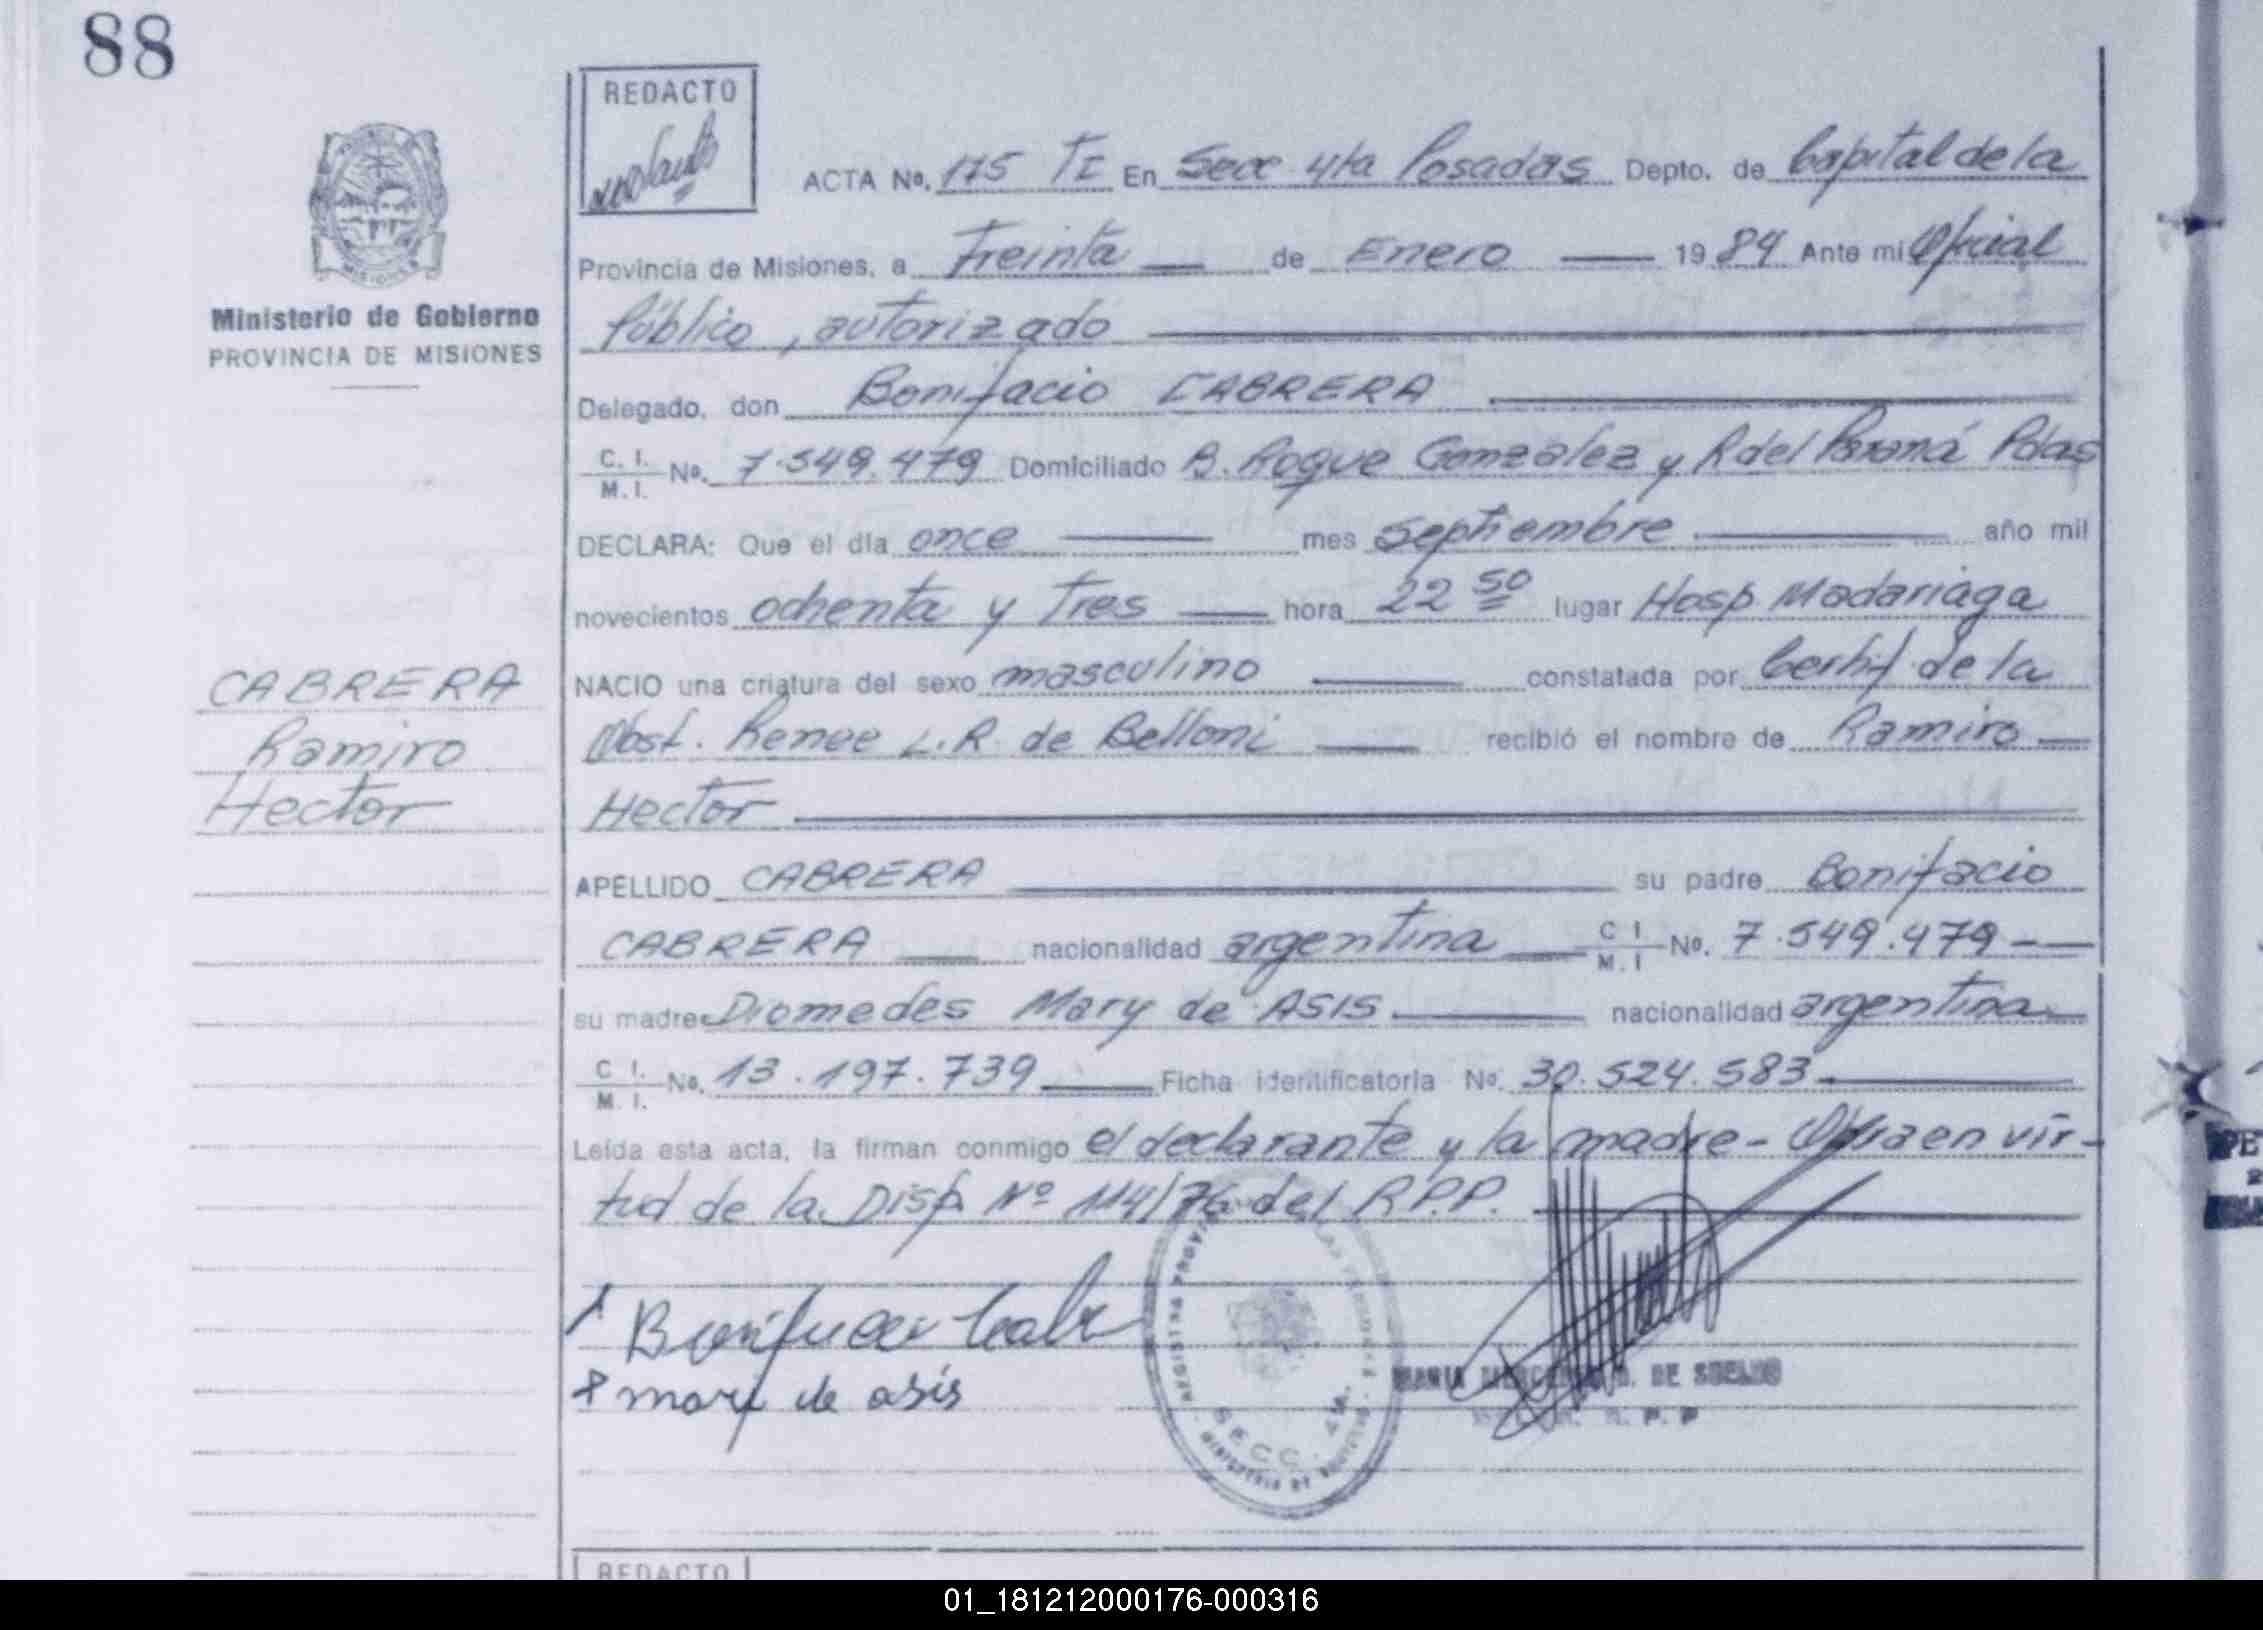 88
REDACTO
ACTA No. 175 TE En Secc 4ta Posadas Depto. de Capital de la
MISIONES
Provincia de Misiones, a Treinta de Enero 1984 Ante mi Oficial
Ministerio de Gobierno
Público, autorizado
PROVINCIA DE MISIONES
Delegado, don Bonifacio CABRERA
C. I. M. I. No. 7.549.479 Domiciliado B. Roque Gonzalez y R del Paraná Pdas
DECLARA: Que el día once mes septiembre año mil
novecientos ochenta y Tres hora 22 50 lugar Hosp. Madariaga
NACIO una criatura del sexo masculino constatada por Certif. de la
CABRERA
Obst. Renee L.R. de Belloni recibió el nombre de Ramiro
Ramiro
Hector
Hector
APELLIDO CABRERA su padre Bonifacio
CABRERA nacionalidad argentina C I M. I No. 7.549.479
su madre Diomedes Mary de ASIS nacionalidad argentina
C I. M. I. No. 13.197.739 Ficha identificatoria No. 30.524.583
Leída esta acta, la firman conmigo el declarante y la madre - en vir-
tud de la Disp. Nº 114/76 del R.P.P.
Bonifacio
mary de asis
SECC. 4TA.
MARIA DE
REDACTO
01_181212000176-000316